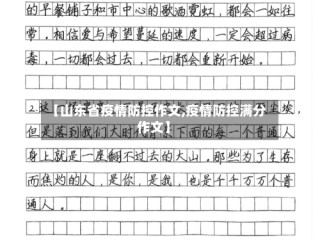 的早餐铺子和市中心的歌酒霓虹,都会一如往
常,相信爱与希望蔓延的速度,一定会超过病
毒,一切都会过去,一切都会重新开始。
2.这 埃,
【山东省疫情防控作文,疫情防控满分
作文】
但是落到我们大时代 下面的每一个普通人
身上就是一座翻不过去的大山。那些为了生存
而焦灼的人,是你,是我,也是千千万万个普
通人。